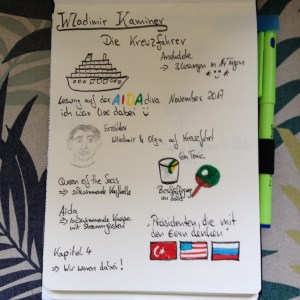 Wladimir Kaminer
Die Kreuzfahrer
Anekdote
Lesung auf der AIDAdiva November 2017
ich war live dabei
Erzähler
Wladimir & Olga auf Kreuzfahrt
Gin Tonic
Queen of the Seas
→ schwimmende
Beschäftigung
an Bord
Aida
→ schwimmende Kneipe
mit Stammgästen
"Präsidenten, die mit
den Eiern denken"
Kapitel 4
→ Wir waren dabei!